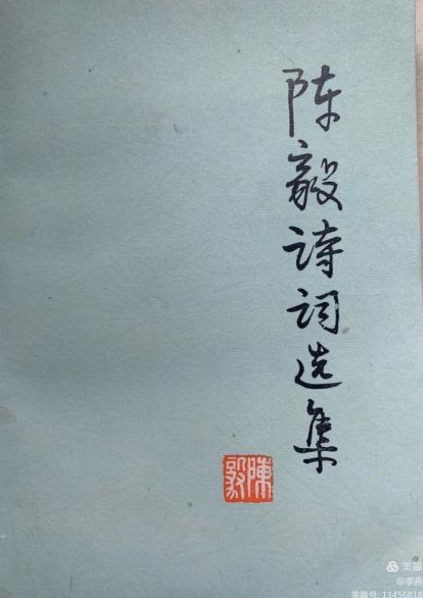 陈毅诗词选集
陳毅
美篇
@李燕
美篇号: 11456818